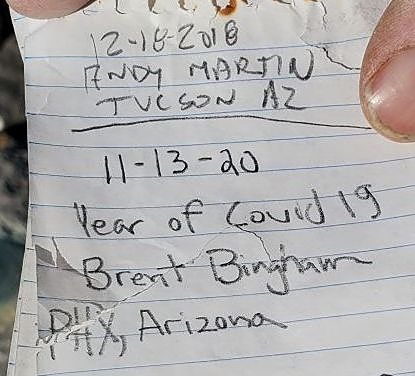 12-18-2018
ANDY MARTIN
TUCSON AZ
11-13-20
Year of Covid 19
Brent Bingham
PHX, Arizona